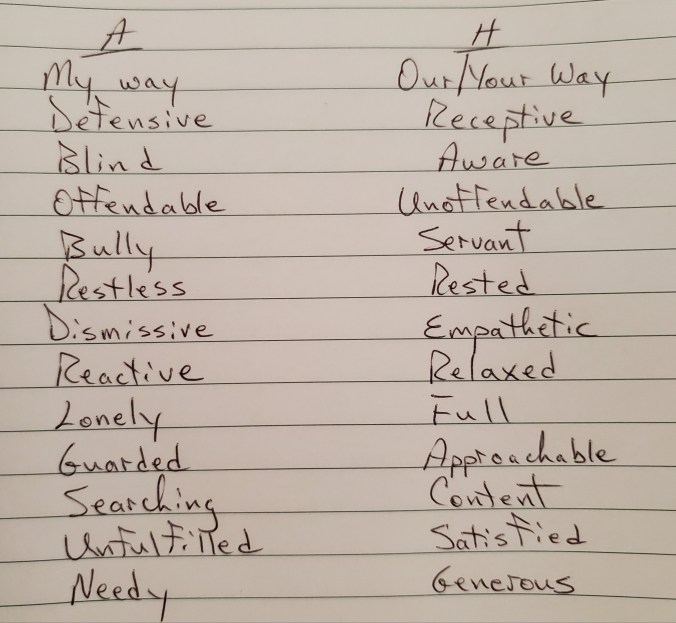 A H
My way Our/Your Way
Defensive Receptive
Blind Aware
Offendable Unoffendable
Bully Servant
Restless Rested
Dismissive Empathetic
Reactive Relaxed
Lonely Full
Guarded Approachable
Searching Content
Unfulfilled Satisfied
Needy Generous